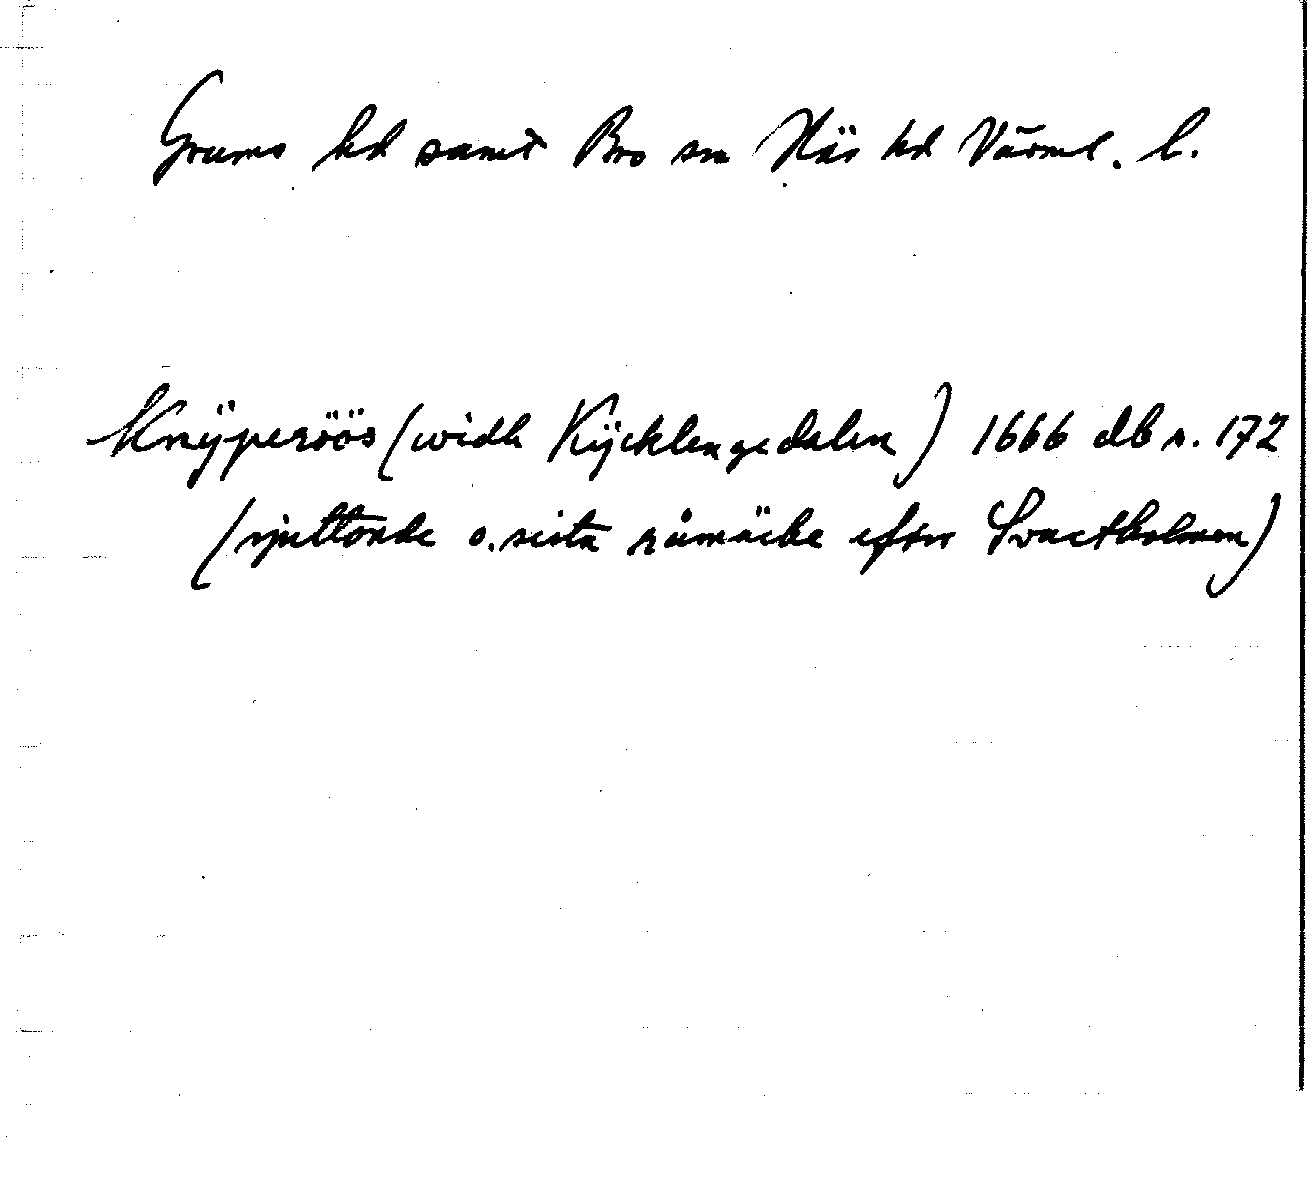 Grums hd samt Bro sn Näs hd Värml. l.
Knÿperöös (widh Kÿcklengedalen) 1666 db s. 172
(sjuttonde o. sista råmärke efter Svartholmen)